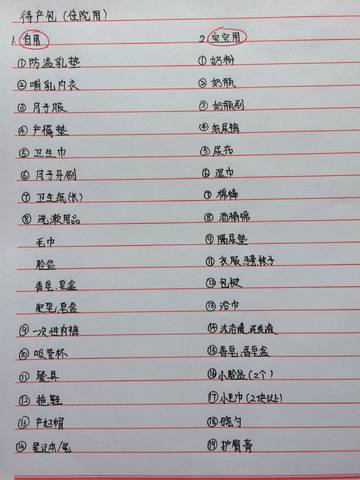 待产包(住院用)
1. 自用
①防溢乳垫
②哺乳内衣
③月子服
④产褥垫
⑤卫生巾
⑥月子牙刷
⑦卫生纸(长)
⑧洗漱用品
毛巾
脸盆
香皂.皂盒
肥皂.皂盒
⑨一次性内裤
⑩吸管杯
⑪餐具
⑫拖鞋
⑬产妇帽
⑭笔记本/笔
2. 宝宝用
①奶粉
②奶瓶
③奶瓶刷
④纸尿裤
⑤尿布
⑥湿巾
⑦棉棒
⑧酒精棉
⑨隔尿垫
⑪衣服.袜子
⑫包被
⑬浴巾
⑭沐浴露.洗发液
⑮香皂.香皂盒
⑯小脸盆(2个)
⑰小毛巾(2块以上)
⑱碗勺
⑲护臀膏